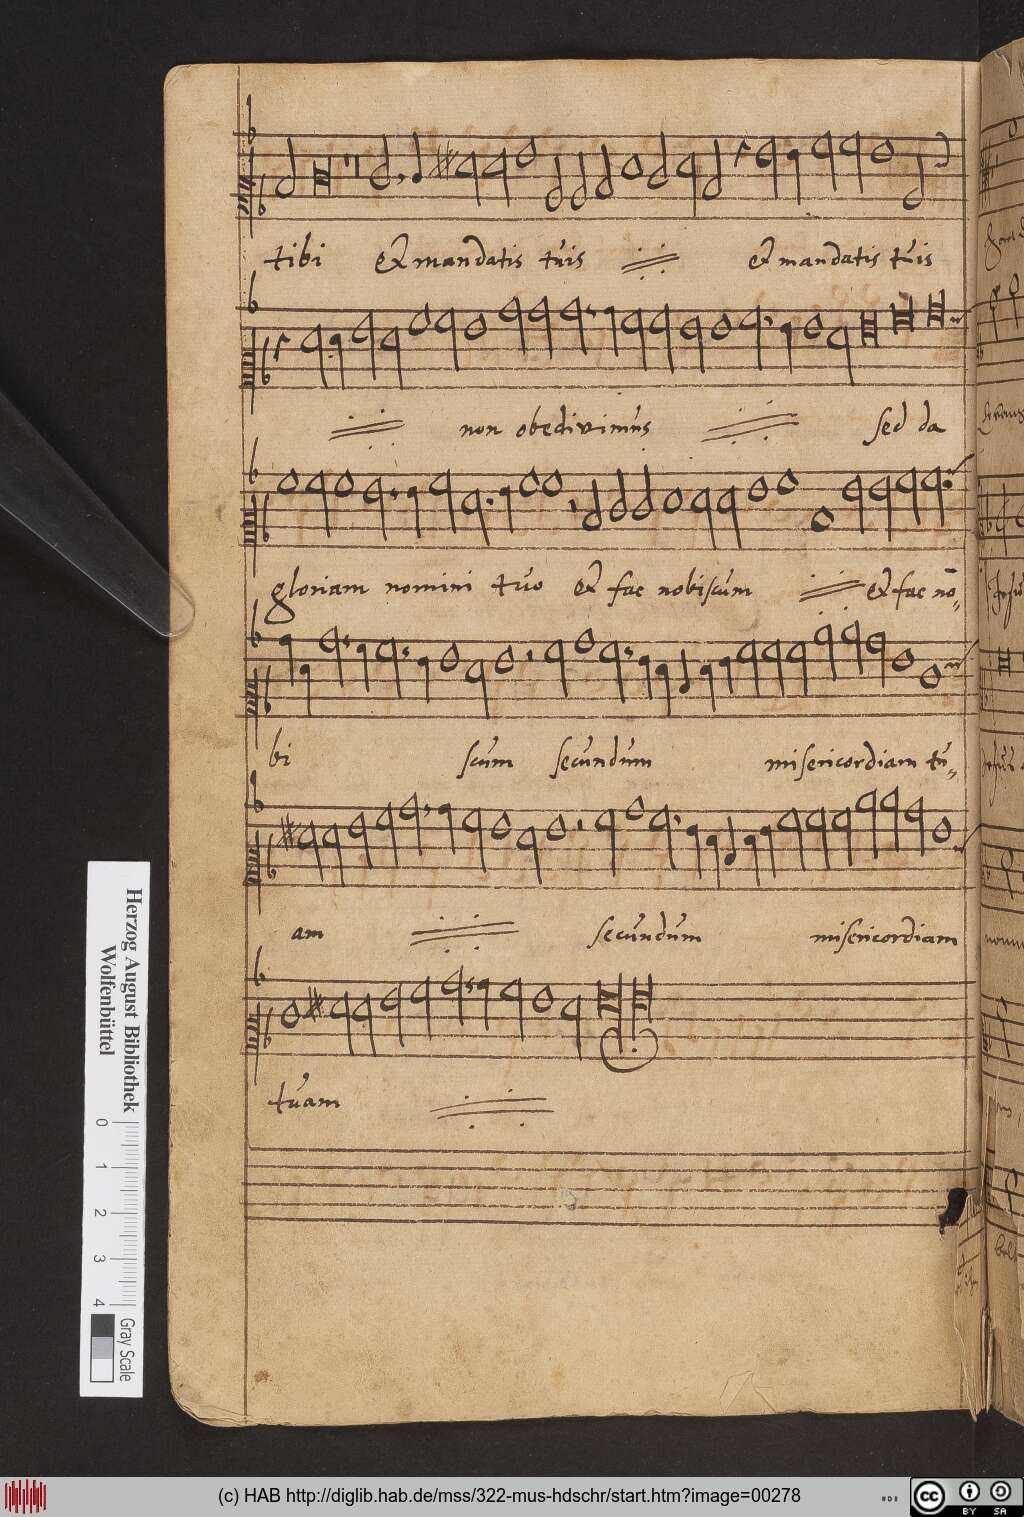 tibi et mandatis tuis et mandatis tuis
non obedivimus sed da
gloriam nomini tuo et fac nobiscum et fac no„
bi scum secundum misericordiam tu„
am secundum misericordiam
tuam
Herzog August Bibliothek
Wolfenbüttel
0 1 2 3 4
Gray Scale
(c) HAB http://diglib.hab.de/mss/322-mus-hdschr/start.htm?image=00278
cc BY SA